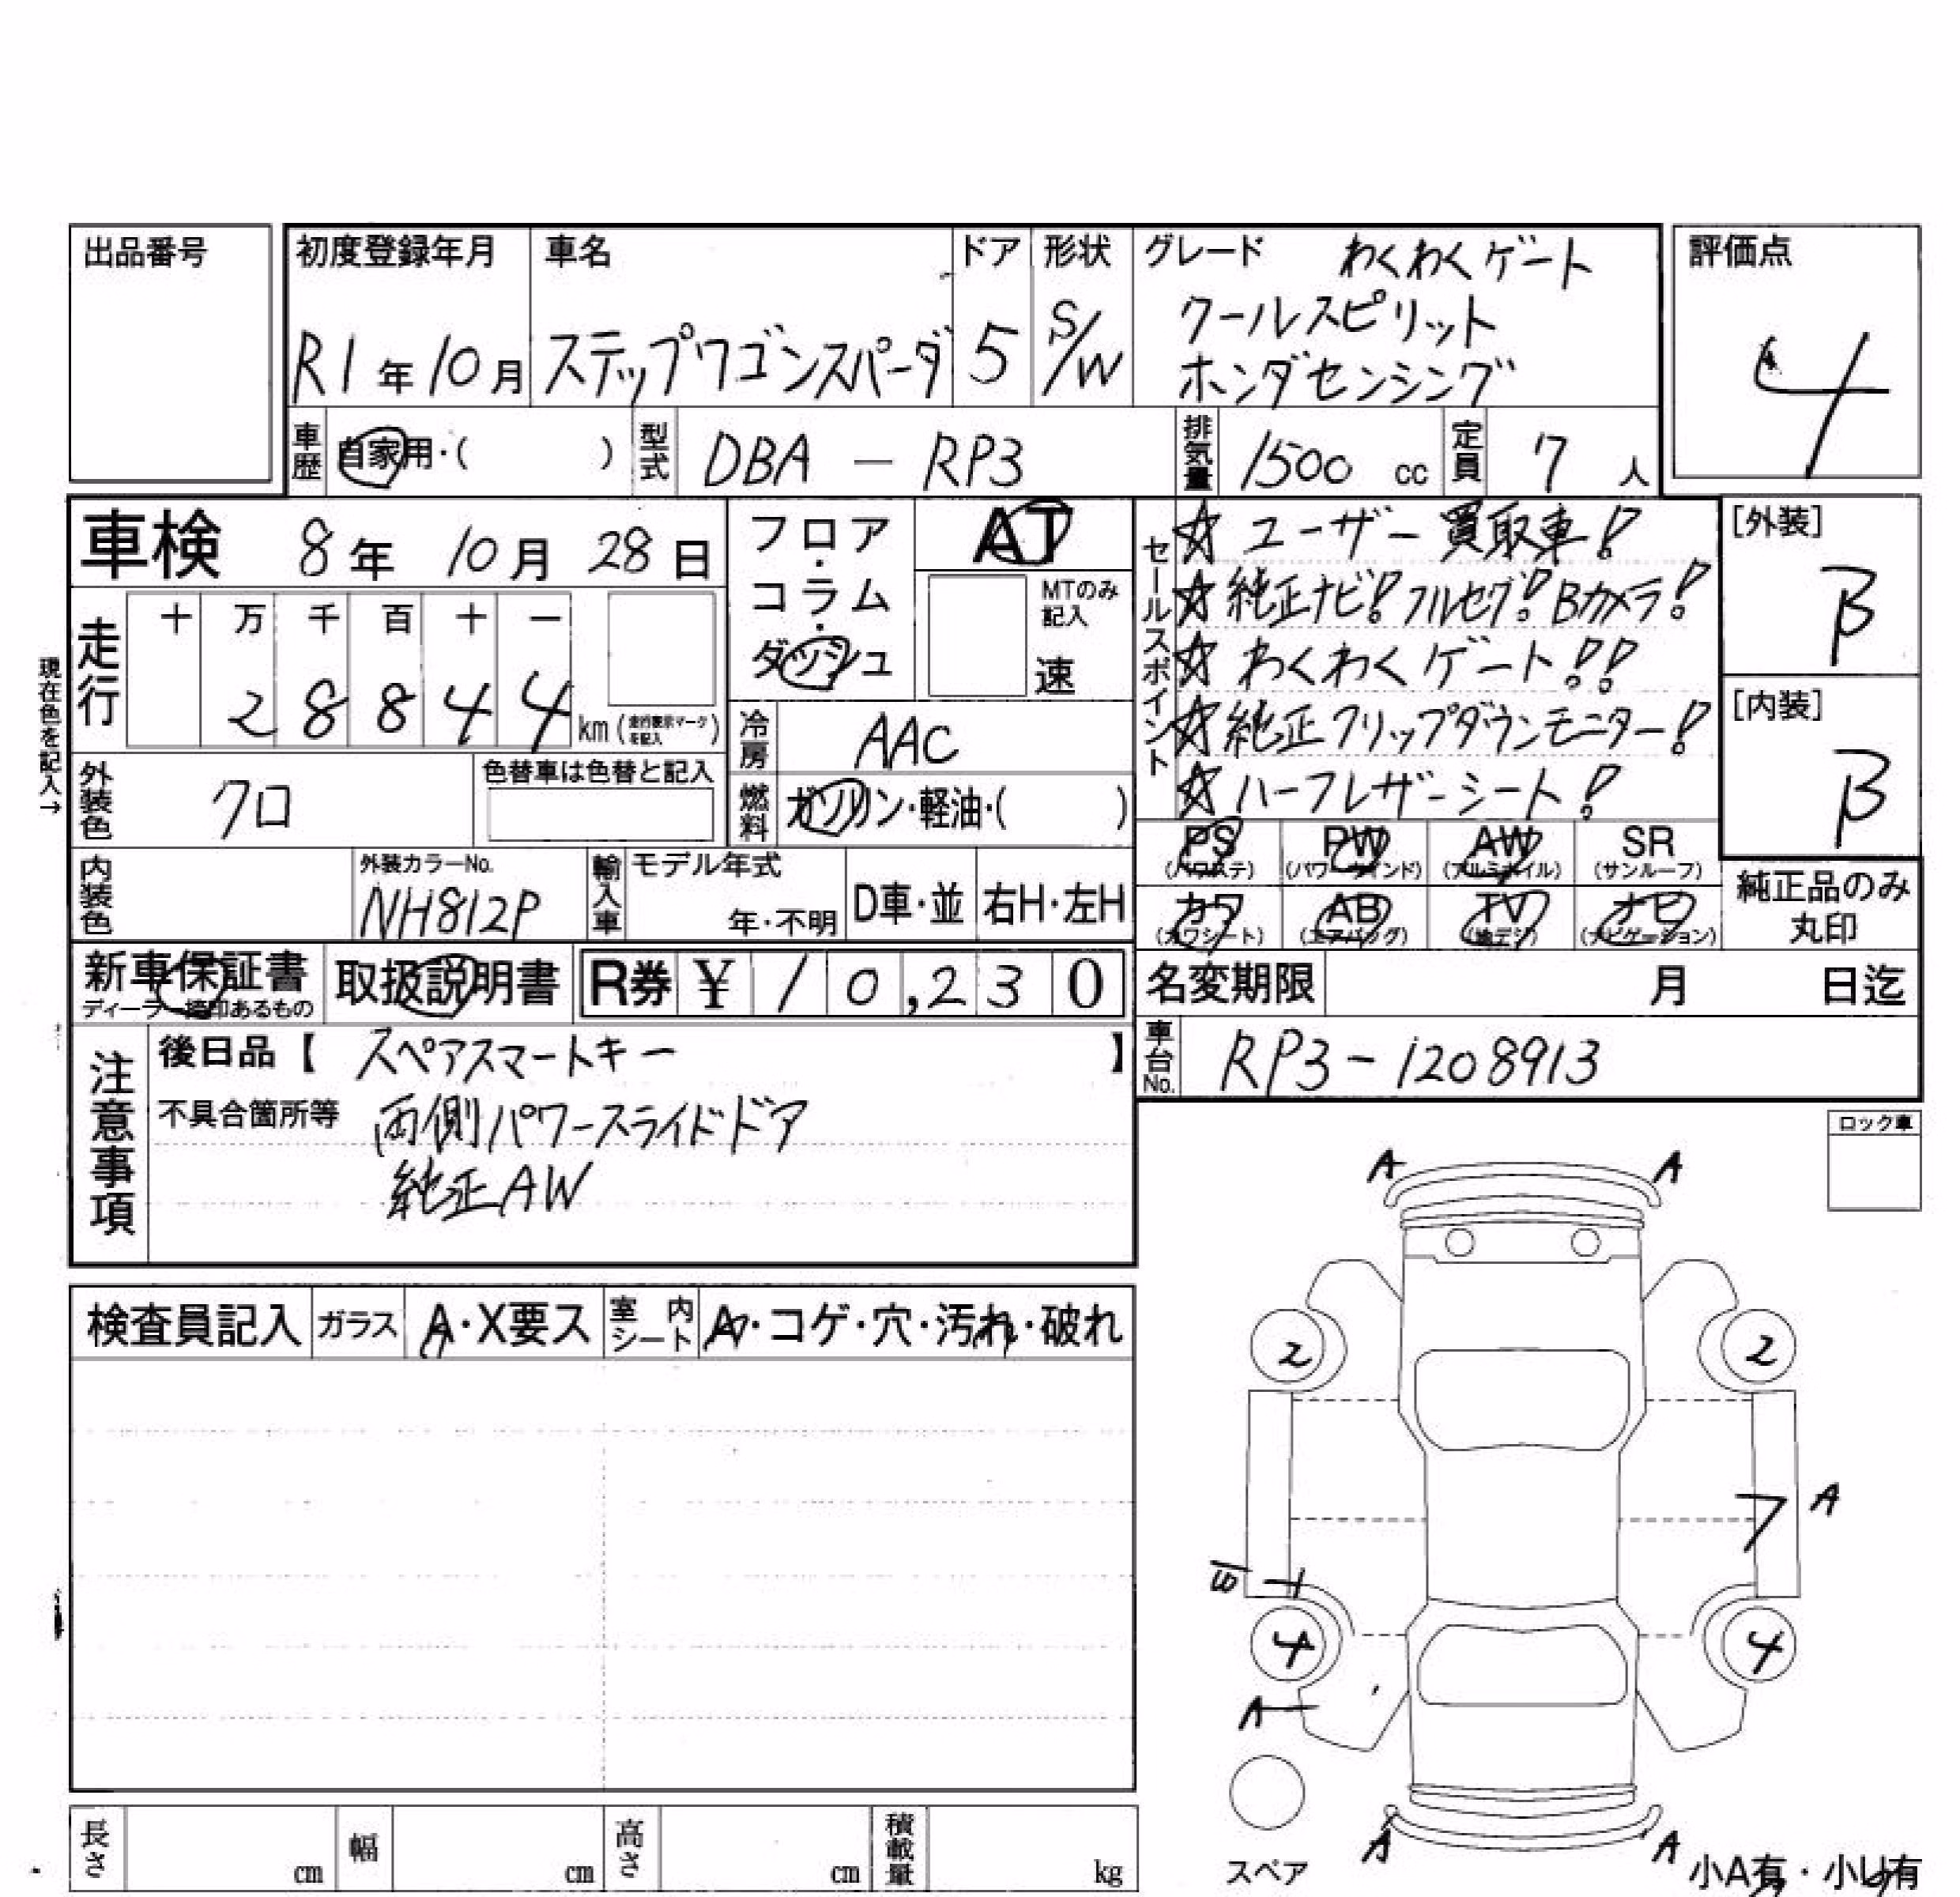 出品番号
初度登録年月 車名 ドア 形状 グレード わくわくゲート
クールスピリット
R1年10月 ステップワゴンスパーダ 5 S/W ホンダセンシング
評価点
4
車歴 自家用・( ) 型式 DBA - RP3 排気量 1500 cc 定員 7 人
車検 8年 10月 28日
フロア・コラム・ダッシュ
AT
MTのみ記入
速
走行 十 万 千 百 十 一
2 8 8 4 4 km (走行表示マークを記入)
現在色を記入→
冷房 AAC
外装色 クロ 色替車は色替と記入
燃料 ガソリン・軽油・( )
内装色 外装カラーNo. NH812P
輸入車 モデル年式 年・不明 D車・並 右H・左H
セールスポイント
☆ ユーザー買取車!
☆ 純正ナビ!フルセグ!Bカメラ!
☆ わくわくゲート!!
☆ 純正フリップダウンモニター!
☆ ハーフレザーシート!
[外装]
B
[内装]
B
PS (パワステ) PW (パワーウインド) AW (アルミホイル) SR (サンルーフ)
カワ (カワシート) AB (エアバッグ) TV (地デジ) ナビ (ナビゲーション)
純正品のみ丸印
新車保証書 取扱説明書 R券 ¥ 10,230
ディーラー捺印あるもの
名変期限 月 日迄
車台No. RP3-1208913
注意事項
後日品【 スペアスマートキー 】
不具合箇所等 両側パワースライドドア
純正AW
ロック車
検査員記入 ガラス A・X要ス 室内シート A・コゲ・穴・汚れ・破れ
A A
2 2
A
4 4
A
A A
スペア
小A有・小U有
長さ cm 幅 cm 高さ cm 積載量 kg